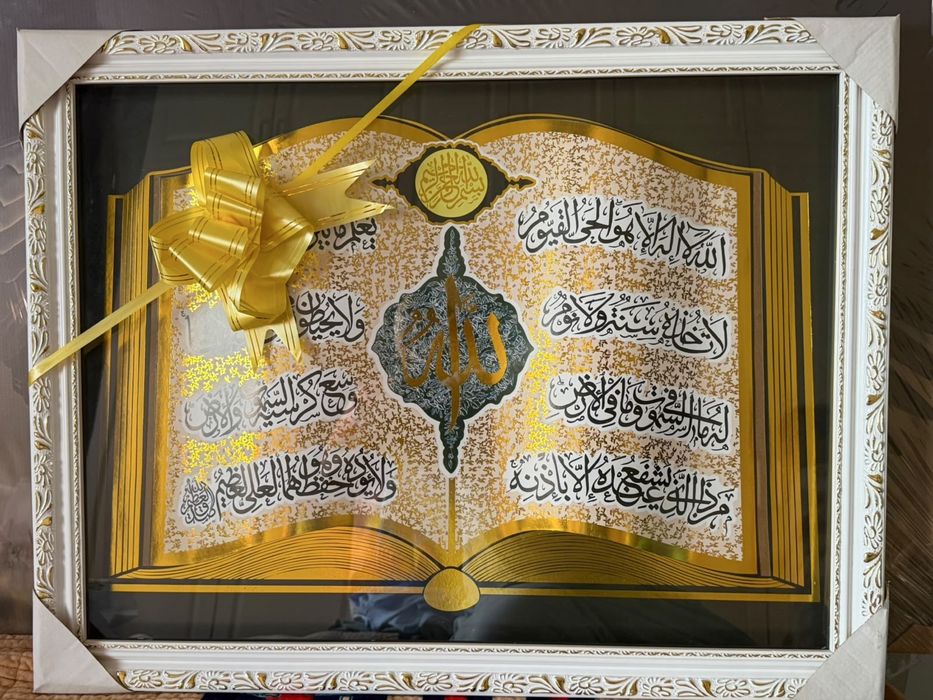 بسم الله الرحمن الرحيم
الله
الله لا اله الا هو الحي القيوم
لا تاخذه سنة ولا نوم
له ما في السموت وما في الارض
من ذا الذي يشفع عنده إلا باذنه
يعلم ما بين
ولا يحيطون
وسع كرسيه السموت والارض
ولا يؤده حفظهما وهو العلي العظيم